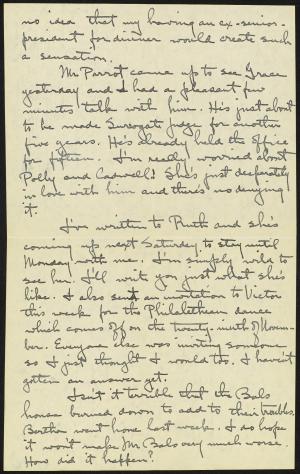 no idea that my having an ex-senior-
president for dinner would create such
a sensation.
Mr. Parrot came up to see Grace
yesterday and I had a pleasant few
minutes talk with him. He's just about
to be made Surrogate judge for another
five years. He's already held the office
for fifteen. I'm really worried about
Polly and Cadwell! She's just desperately
in love with him and there's no denying
it.
I've written to Ruth and she's
coming up next Saturday to stay until
Monday with me. I'm simply wild to
see her. I'll write you just what she's
like. I also sent an invitation to Victor
this week for the Philalethean dance
which comes off on the twenty-ninth of Novem-
ber. Everyone else was inviting someone
so I just thought I would too. I haven't
gotten an answer yet.
Isn't it terrible that the Bals
house burned down to add to their troubles.
Bertha went home last week. I do hope
it won't make Mr. Bals very much worse.
How did it happen?